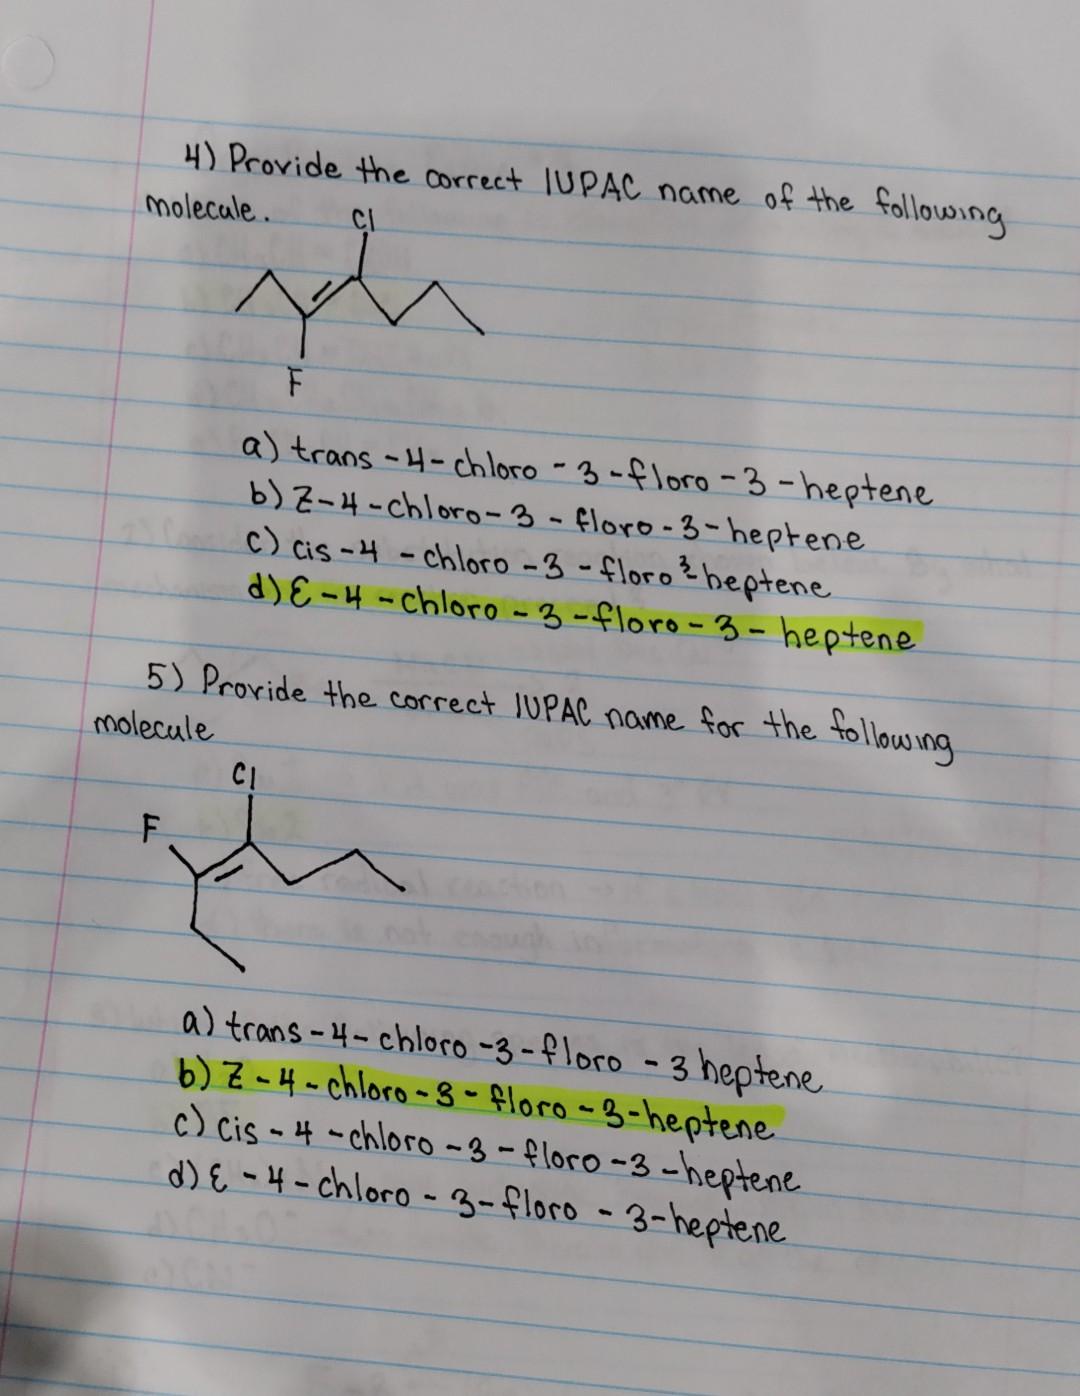 4) Provide the correct IUPAC name of the following
molecule.
Cl
F
a) trans-4-chloro-3-floro-3-heptene
b) Z-4-chloro-3-floro-3-heptene
c) cis-4-chloro-3-floro 3-heptene
d) E-4-chloro-3-floro-3-heptene
5) Provide the correct IUPAC name for the following
molecule
Cl
F
a) trans-4-chloro-3-floro-3 heptene
b) Z-4-chloro-3-floro-3-heptene
c) cis-4-chloro-3-floro-3-heptene
d) E-4-chloro-3-floro-3-heptene